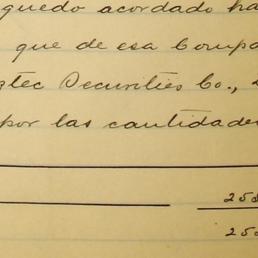 quedo acordado ha
que de esa Compa
ztec Securities Co.,
por las cantidade
258
258